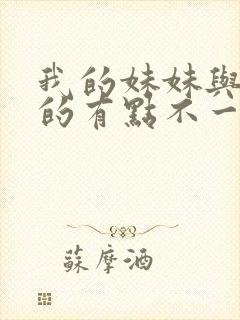 我的妹妹與
的有點不一
蘇摩酒